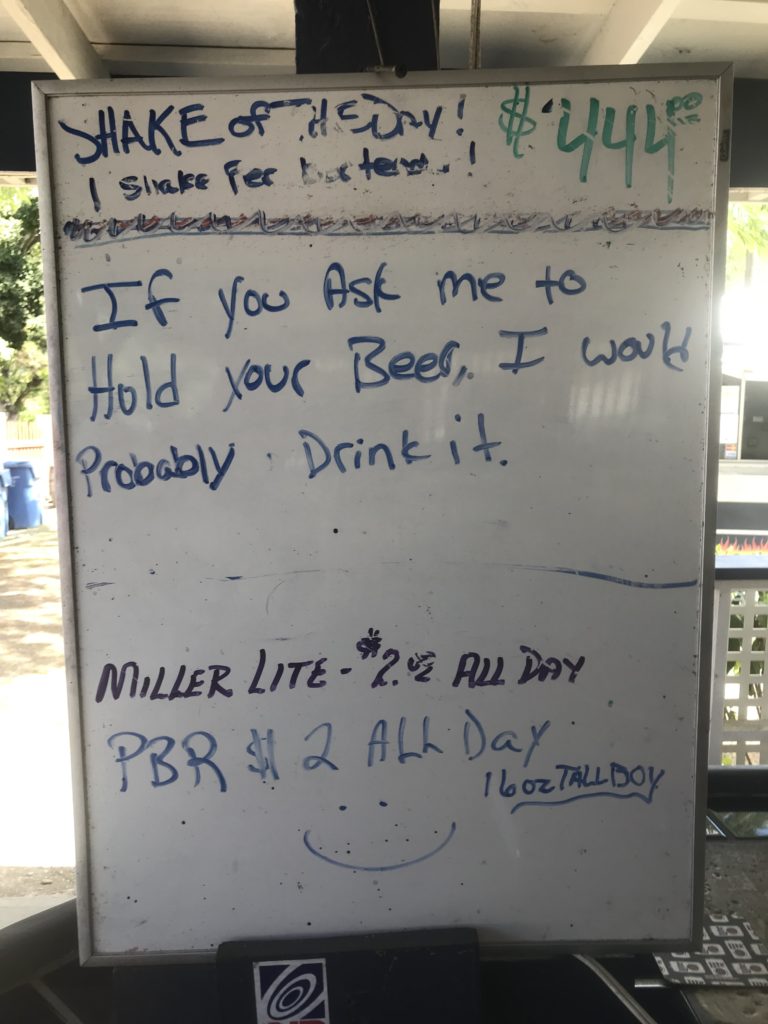 SHAKE of THE DAY! $444
1 Shake Per
If you Ask me to
Hold your Beer, I would
Probably Drink it.
MILLER LITE - $2. ALL DAY
PBR $2 ALL Day
16oz TALL BOY